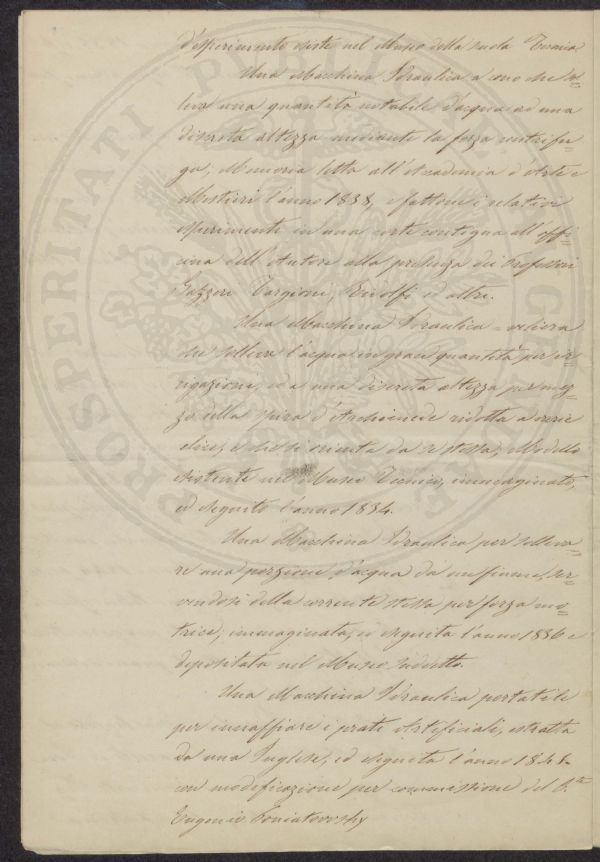 d'esperimento esiste nel Museo della scuola Tecnica
Una Macchina Idraulica a cono che sol=
leva una quantità notabile d'acqua ad una
discreta altezza mediante la forza centrifu=
ga; Memoria letta all'Accademia d'Arte e
Mestieri l'anno 1838, e fattone i relativi
esperimenti in una corte contigua all'offi=
cina dell'Autore alla presenza dei Professori
Gazzeri Targioni, Ridolfi ed altri.
Una Macchina Idraulica = eoliera
che solleva l'acqua in gran quantità per ir=
rigazioni, ed a una discreta altezza per mez=
zo della spira d'Archimede ridotta a
elice, e che si orienta da se stessa; Modello
esistente nel Museo Tecnico, immaginato,
ed eseguito l'anno 1834.
Una Macchina Idraulica per solleva=
re una porzione d'acqua da un fiume, ser=
vendosi della corrente stessa per forza mo=
trice, immaginata, ed eseguita l'anno 1836 e
depositata nel Museo suddetto.
Una Macchina Idraulica portatile
per innaffiare i prati Artificiali, estratta
da una Inglese, ed eseguita l'anno 1848
con modificazione per commissione del P.
Eugenio Poniatowsky
PROSPERITATI PUBLICAE